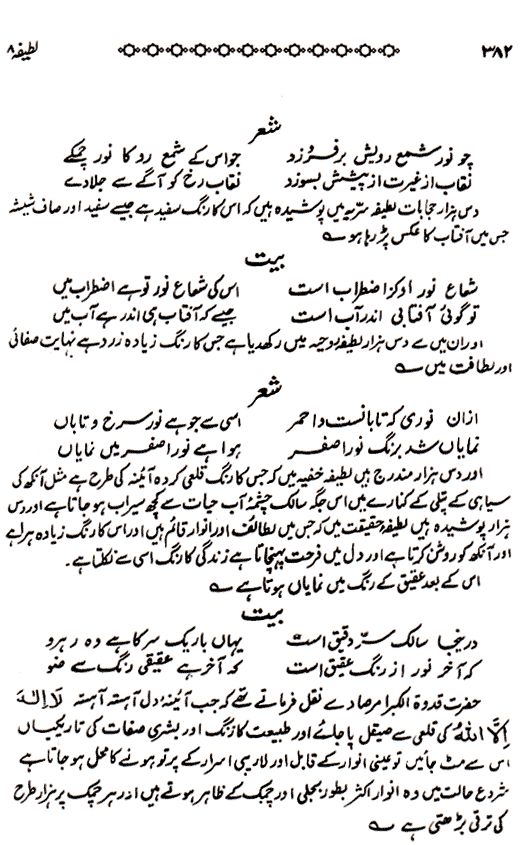 ۳۸۲
لطیفہ ۸
شعر
چو نور شمع رویش برفروزد جو اس کے شمع رو کا نور چمکے
نقاب از غیرت از پیشش بسوزد نقاب رخ کو آگے سے جلا دے
دس ہزار حجابات لطیفہ سریہ میں پوشیدہ ہیں کہ اس کا رنگ سفید ہے جیسے سفید اور صاف شیشہ
جس میں آفتاب کا عکس پڑ رہا ہو ؎
بیت
شعاع نور او کز اضطراب است اس کی شعاع نور تو ہے اضطراب میں
تو گوئی آفتابی اندر آب است جیسے کہ آفتاب ہی اندر ہے آب میں
اور ان میں سے دس ہزار لطیفہ روحیہ میں رکھدیا ہے جس کا رنگ زیادہ زرد ہے نہایت صفائی
اور لطافت میں ؎
شعر
ازان نوری کہ تابانست و احمر اسی سے جو ہے نور سرخ و تاباں
نمایاں شد برنگ نور اصفر ہوا ہے نور اصفر میں نمایاں
اور دس ہزار مندرج ہیں لطیفہ خفیہ میں کہ جس کا رنگ قلعی کردہ آئینہ کی طرح ہے مثل آنکھ کی
سیاہی کے پتلی کے کنارے میں اس جگہ سالک چشمۂ آب حیات سے کچھ سیراب ہو جاتا ہے اور دس
ہزار پوشیدہ ہیں لطیفۂ حقیقت میں کہ جس میں لطائف اور انوار قائم ہیں اور اس کا رنگ زیادہ ہرا ہے
اور آنکھ کو روشن کرتا ہے اور دل میں فرحت پہنچاتا ہے زندگی کا رنگ اسی سے نکلتا ہے۔
اس کے بعد عقیق کے رنگ میں نمایاں ہوتا ہے ؎
بیت
در ینجا سالک سرّ دقیق است یہاں باریک سر کا ہے وہ رہرو
کہ آخر نور از رنگ عقیق است کہ آخر ہے عقیقی رنگ سے ضو
حضرت قدوۃ الکبرا مرصاد سے نقل فرماتے تھے کہ جب آئینۂ دل آہستہ آہستہ لَا اِلٰهَ
اِلَّا اللهُ کی قلعی سے صیقل پا جائے اور طبیعت کا زنگ اور بشری صفات کی تاریکیاں
اس سے مٹ جائیں تو عینی انوار کے قابل اور لاریبی اسرار کے پرتو ہونے کا محل ہو جاتا ہے
شروع حالت میں وہ انوار اکثر بطور بجلی اور چمک کے ظاہر ہوتے ہیں اور ہر چمک پر ہزار طرح
کی ترقی بڑھتی ہے ؎